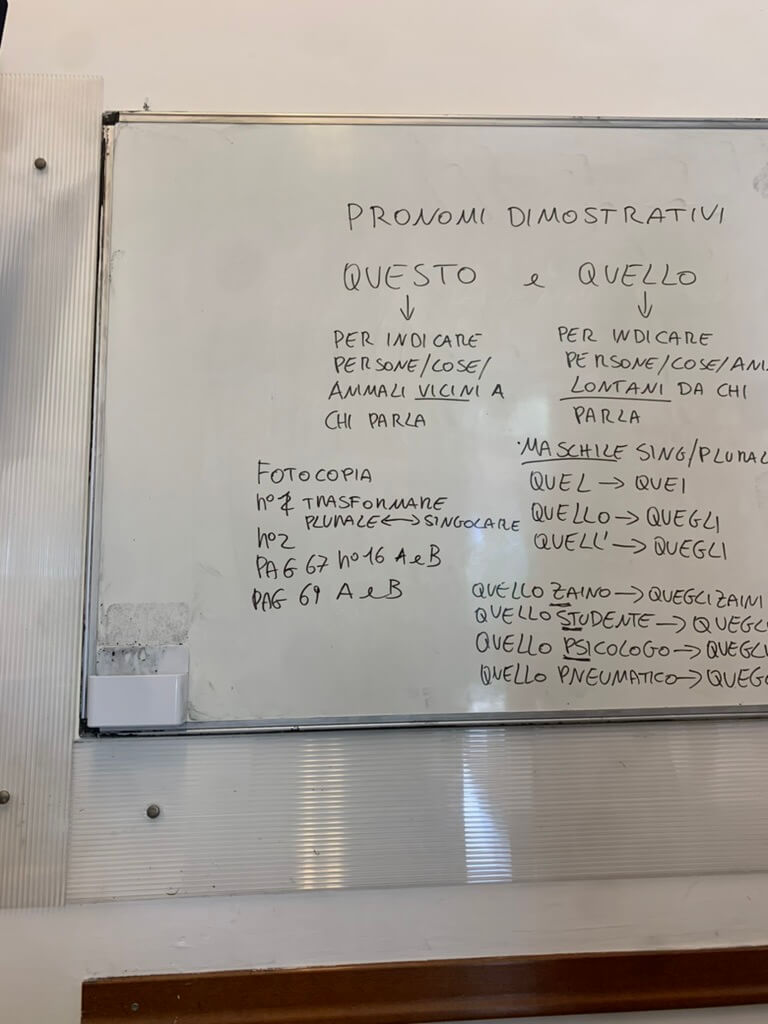 PRONOMI DIMOSTRATIVI
QUESTO e QUELLO
↓ ↓
PER INDICARE
PERSONE/COSE/
ANIMALI VICINI A
CHI PARLA
PER INDICARE
PERSONE/COSE/ANI
LONTANI DA CHI
PARLA
·MASCHILE SING/PLURAL
QUEL → QUEI
QUELLO → QUEGLI
QUELL' → QUEGLI
FOTOCOPIA
n° 1 TRASFORMARE
PLURALE ↔ SINGOLARE
n° 2
PAG 67 n° 16 A e B
PAG 69 A e B
QUELLO ZAINO → QUEGLI ZAINI
QUELLO STUDENTE → QUEGL
QUELLO PSICOLOGO → QUEGLI
QUELLO PNEUMATICO → QUEG